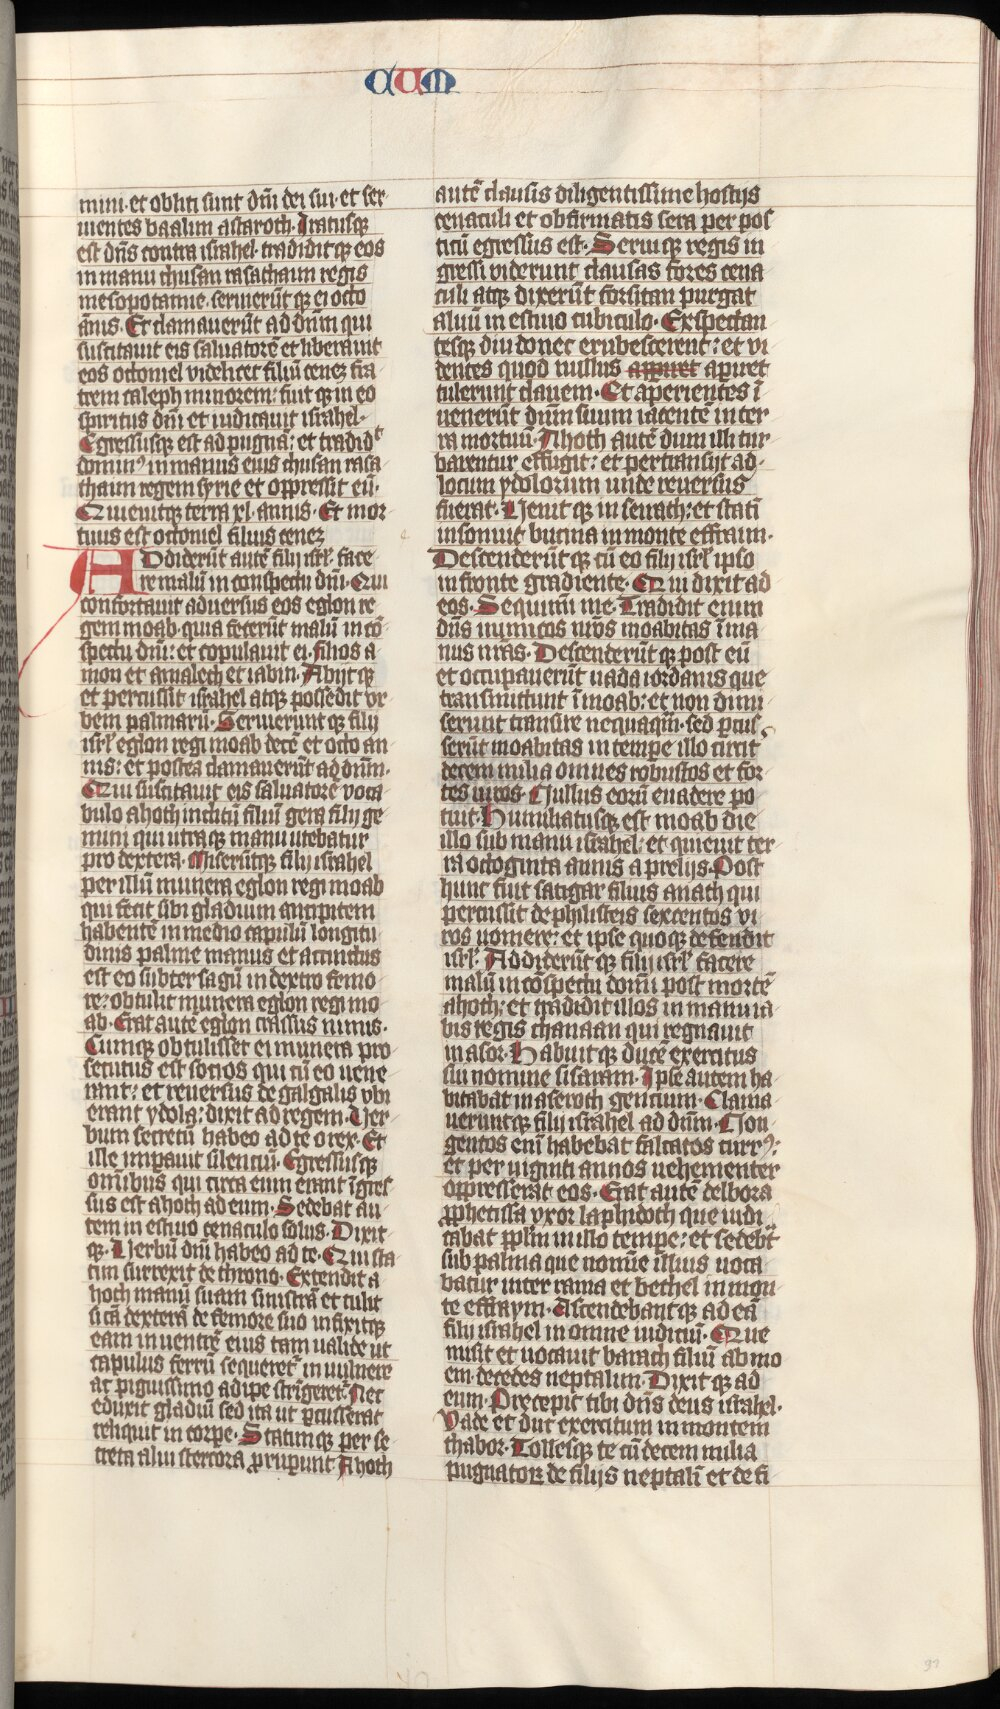 CUM
mini et obliti sunt dn̄i dei sui et ser
uientes baalim astaroth. Iratusq̨
est dn̄s contra israhel tradidit q̨ eos
in manu chusan rasathaim regis
mesopotamie. seruierūt q̨ ei octo
ānis. Et clamauerūt ad dn̄m qui
suscitauit eis saluatorē et liberauit
eos othoniel videlicet filiū cenez fra
trem caleph minorem: fuit q̨ in eo
spiritus dn̄i et iudicauit israhel.
Egressusq̨ est ad pugnā: et tradidᵗ
dominꝰ in manus eius chusan rasa
thaim regem syrie et oppressit eū.
Quieuitq̨ terra xl. annis. Et mor
tuus est othoniel filius cenez
Addiderūt autē filij isrl̄. face
re malū in conspectu dn̄i. Qui
confortauit aduersus eos eglon re
gem moab quia fecerūt malū in cō
spectu dn̄i: et copulauit ei filios a
mon et amalech et iabin. Abijt q̨
et percussit israhel atq̨ possedit vr
bem palmarū. Seruierunt q̨ filij
isrl̄ eglon regi moab decē et octo an
nis: et postea clamauerūt ad dn̄m.
Qui suscitauit eis saluatorē voca
bulo ahoth inclitū filiū gera filij ge
mini qui utraq̨ manu utebatur
pro dextera. Miserūtq̨ filij israhel
per illū munera eglon regi moab
qui fecit sibi gladium ancipitem
habentē in medio capulū longitu
dinis palme manus et accinctus
est eo subter sagū in dextro femo
re: obtulit munera eglon regi mo
ab. Erat autē eglon crassus nimis.
Cumq̨ obtulisset ei munera pro
secutus est socios qui cū eo uene
rant: et reuersus de galgalis vbi
erant ydola: dixit ad regem. Uer
bum secretū habeo ad te o rex. Et
ille impauit silenciū. Egressisq̨
omībus qui circa eum erant īgres
sus est ahoth ad eum. Sedebat au
tem in estiuo cenaculo solus. Dixit
q̨. Uerbū dn̄i habeo ad te. Qui sta
tim surrexit de throno. Extendit a
hoth manū suam sinistrā et tulit
sicā dexterā de femore suo infixitq̨
eam in uentrē eius tam ualide ut
capulus ferrū sequeret᷑ in uulnere
ac pīguissimo adipe strīgeret᷑. Nec
eduxit gladiū sed ita ut ꝑcusserat
reliquit in corpe. Statimq̨ per se
creta alui stercora ꝓrupunt Ahoth
autē clausis diligentissime hostijs
cenaculi et obfirmatis sera per pos
ticū egressus est. Seruiq̨ regis in
gressi viderunt clausas fores cena
culi atq̨ dixerūt forsitan purgat
aluū in estiuo cubiculo. Expectan
tesq̨ diu donec erubescerent: et vi
dentes quod nullus appiret apiret
tulerunt clauem. Et aperientes ī
uenerūt dn̄m suum iacentē in ter
ra mortuū. Ahoth autē dum illi tur
barentur effugit: et pertransijt ad
locum ydolorum unde reuersus
fuerat. Uenit q̨ in seirath: et statī
insonuit bucina in monte effraim.
Descenderūt q̨ cū eo filij isrl̄ ipso
in fronte gradiente. Qui dixit ad
eos. Sequimī me. Tradidit enim
dn̄s inimicos nr̄os moabitas ī ma
nus nr̄as. Descenderūt q̨ post eū
et occupauerūt uada iordanis que
transmittunt ī moab: et non dimi
serunt transire nequaqm̄. sed ꝑcus
serūt moabitas in tempe illo circit
decem milia omnes robustos et for
tes uiros. Nullus eorū euadere po
tuit. Humiliatusq̨ est moab die
illo sub manu israhel: et quieuit ter
ra octoginta annis a prelijs. Post
hunc fuit samgar filius anath qui
percussit de philisteis sexcentos vi
ros uomere: et ipse quoq̨ defendit
isrl̄. Addiderūt q̨ filij isrl̄ facere
malū in cōspectu domi post mortē
ahoth: et tradidit illos in manu ia
bis regis chanaan qui regnauit
in asor. Habuit q̨ ducē exercitus
sui nomine sisaram. Ipse autem ha
bitabat in aseroth gentium. Clama
ueruntq̨ filij israhel ad dn̄m. Non
gentos enī habebat falcatos currꝰ:
et per uiginti annos uehementer
oppresserat eos. Erat autē delbora
ꝓphetissa vxor laphidoth que iudi
cabat ppl̄m in illo tempe: et sedebāt
sub palma que nomīe illius uoca
batur inter rama et bethel in mon
te effraym. Ascendebant q̨ ad eā
filij israhel in omne iudiciū. Que
misit et uocauit barach filiū abino
em de cedes neptalim. Dixit q̨ ad
eum. Precepit tibi dn̄s deus israhel.
Vade et duc exercitum in montem
thabor. Tollesq̨ te cū decem milia
pugnatoꝝ de filijs neptalī et de fi
91